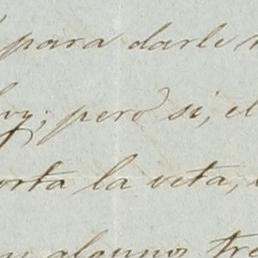 para darle
; pero si, el
la veta,
alguno tre